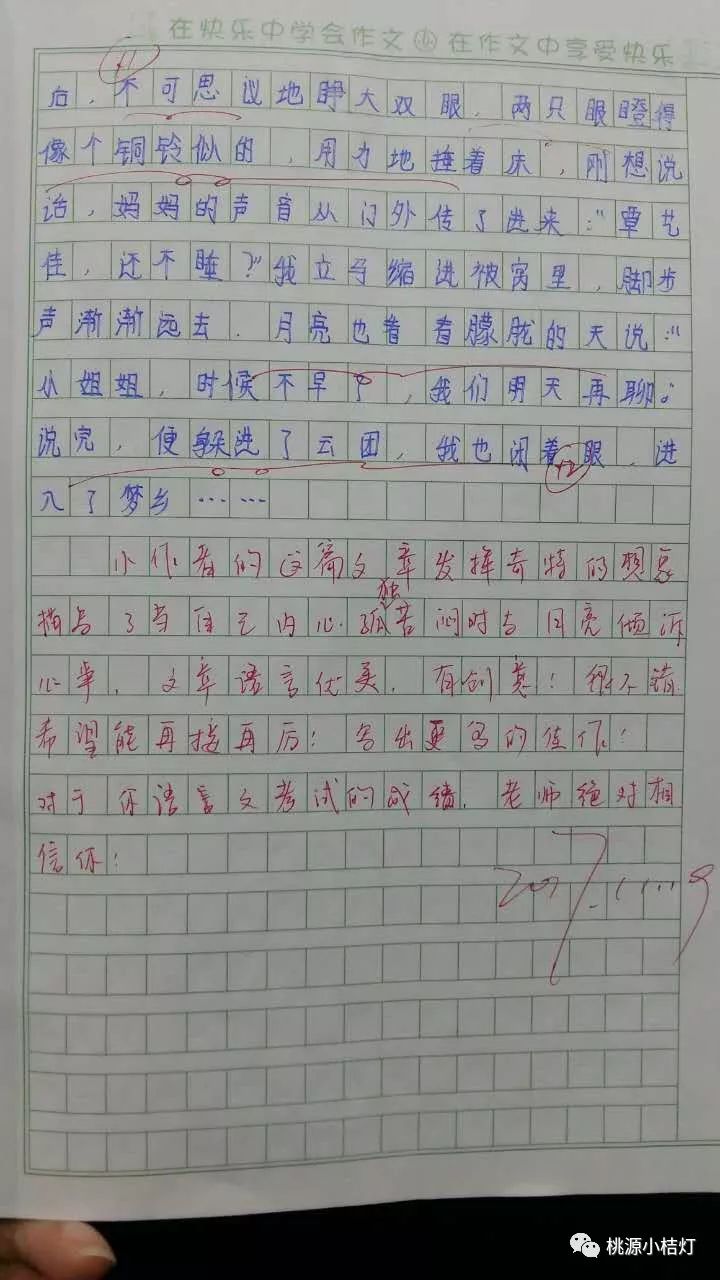 在快乐中学会作文 在作文中享受快乐
+1
后，不可思议地睁大双眼，两只眼瞪得
像个铜铃似的，用力地捶着床，刚想说
话，妈妈的声音从门外传了进来：“覃艺
佳，还不睡？”我立马缩进被窝里，脚步
声渐渐远去．月亮也看着朦胧的天说：“
小姐姐，时候不早了，我们明天再聊。
说完，便躲进了云团，我也闭着眼，进
+2
入了梦乡……
小作者的这篇文章发挥奇特的想象
描写了当自己内心孤独苦闷时与月亮倾诉
心事，文章语言优美，有创意！很不错
希望能再接再厉！写出更多的佳作！
对于你语言文考试的成绩，老师绝对相
信你！
2017.11.19
桃源小桔灯